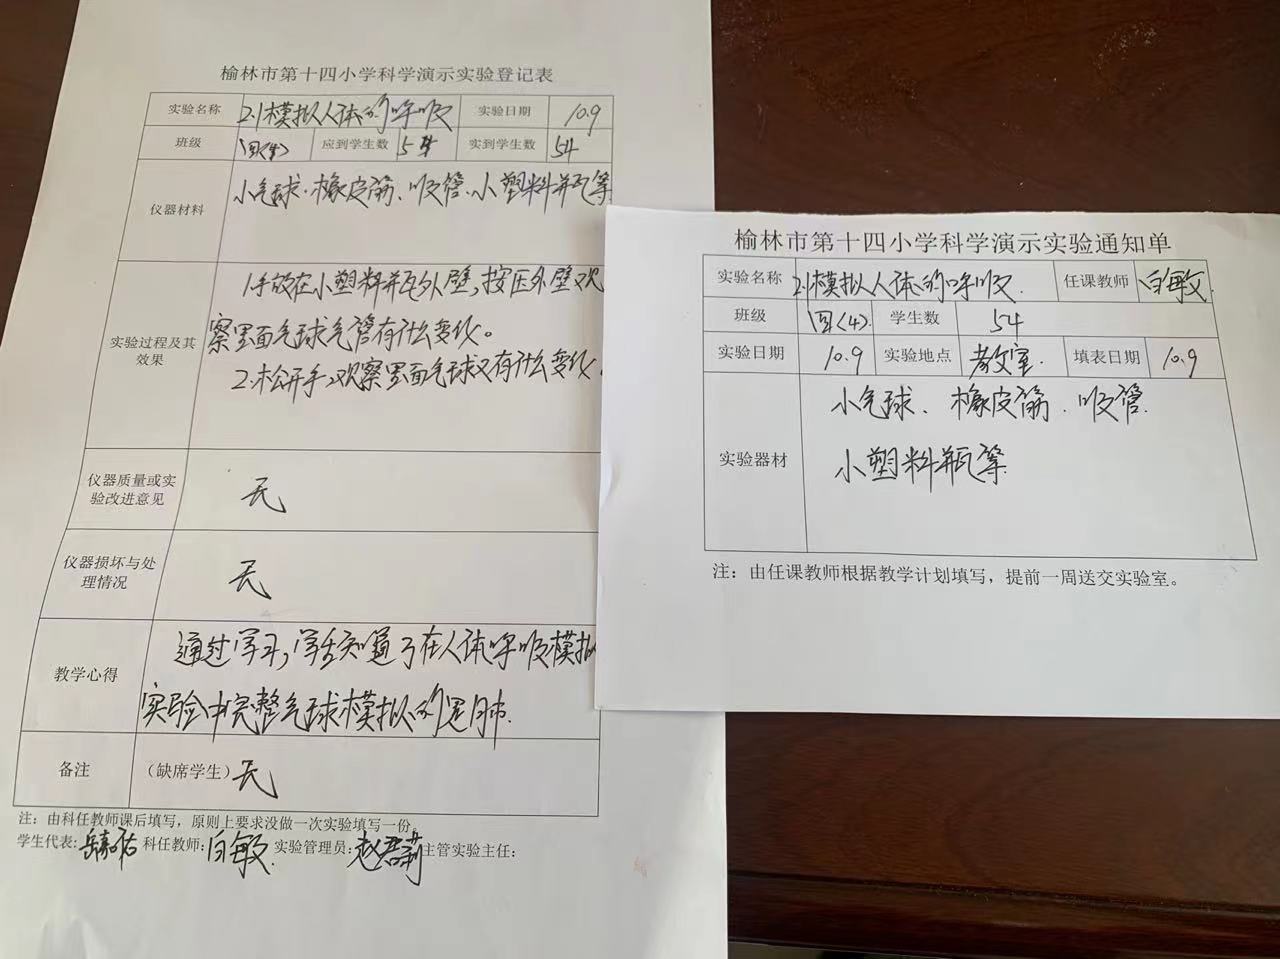 榆林市第十四小学科学演示实验登记表
实验名称 2.1模拟人体的呼吸 实验日期 10.9
班级 四(4) 应到学生数 54 实到学生数 54
仪器材料 小气球、橡皮筋、吸管、小塑料瓶等
实验过程及其效果
1.手放在小塑料瓶外壁,按压外壁观
察里面气球气管有什么变化。
2.松开手,观察里面气球又有什么变化。
仪器质量或实验改进意见 无
仪器损坏与处理情况 无
教学心得
通过学习,学生知道了在人体呼吸模拟
实验中完整气球模拟的是肺.
备注 (缺席学生) 无
注:由科任教师课后填写,原则上要求没做一次实验填写一份。
学生代表: 科任教师:白敏 实验管理员: 主管实验主任:
榆林市第十四小学科学演示实验通知单
实验名称 2.1模拟人体的呼吸. 任课教师 白敏
班级 四(4) 学生数 54
实验日期 10.9 实验地点 教室. 填表日期 10.9
实验器材
小气球、橡皮筋、吸管.
小塑料瓶等
注:由任课教师根据教学计划填写,提前一周送交实验室。